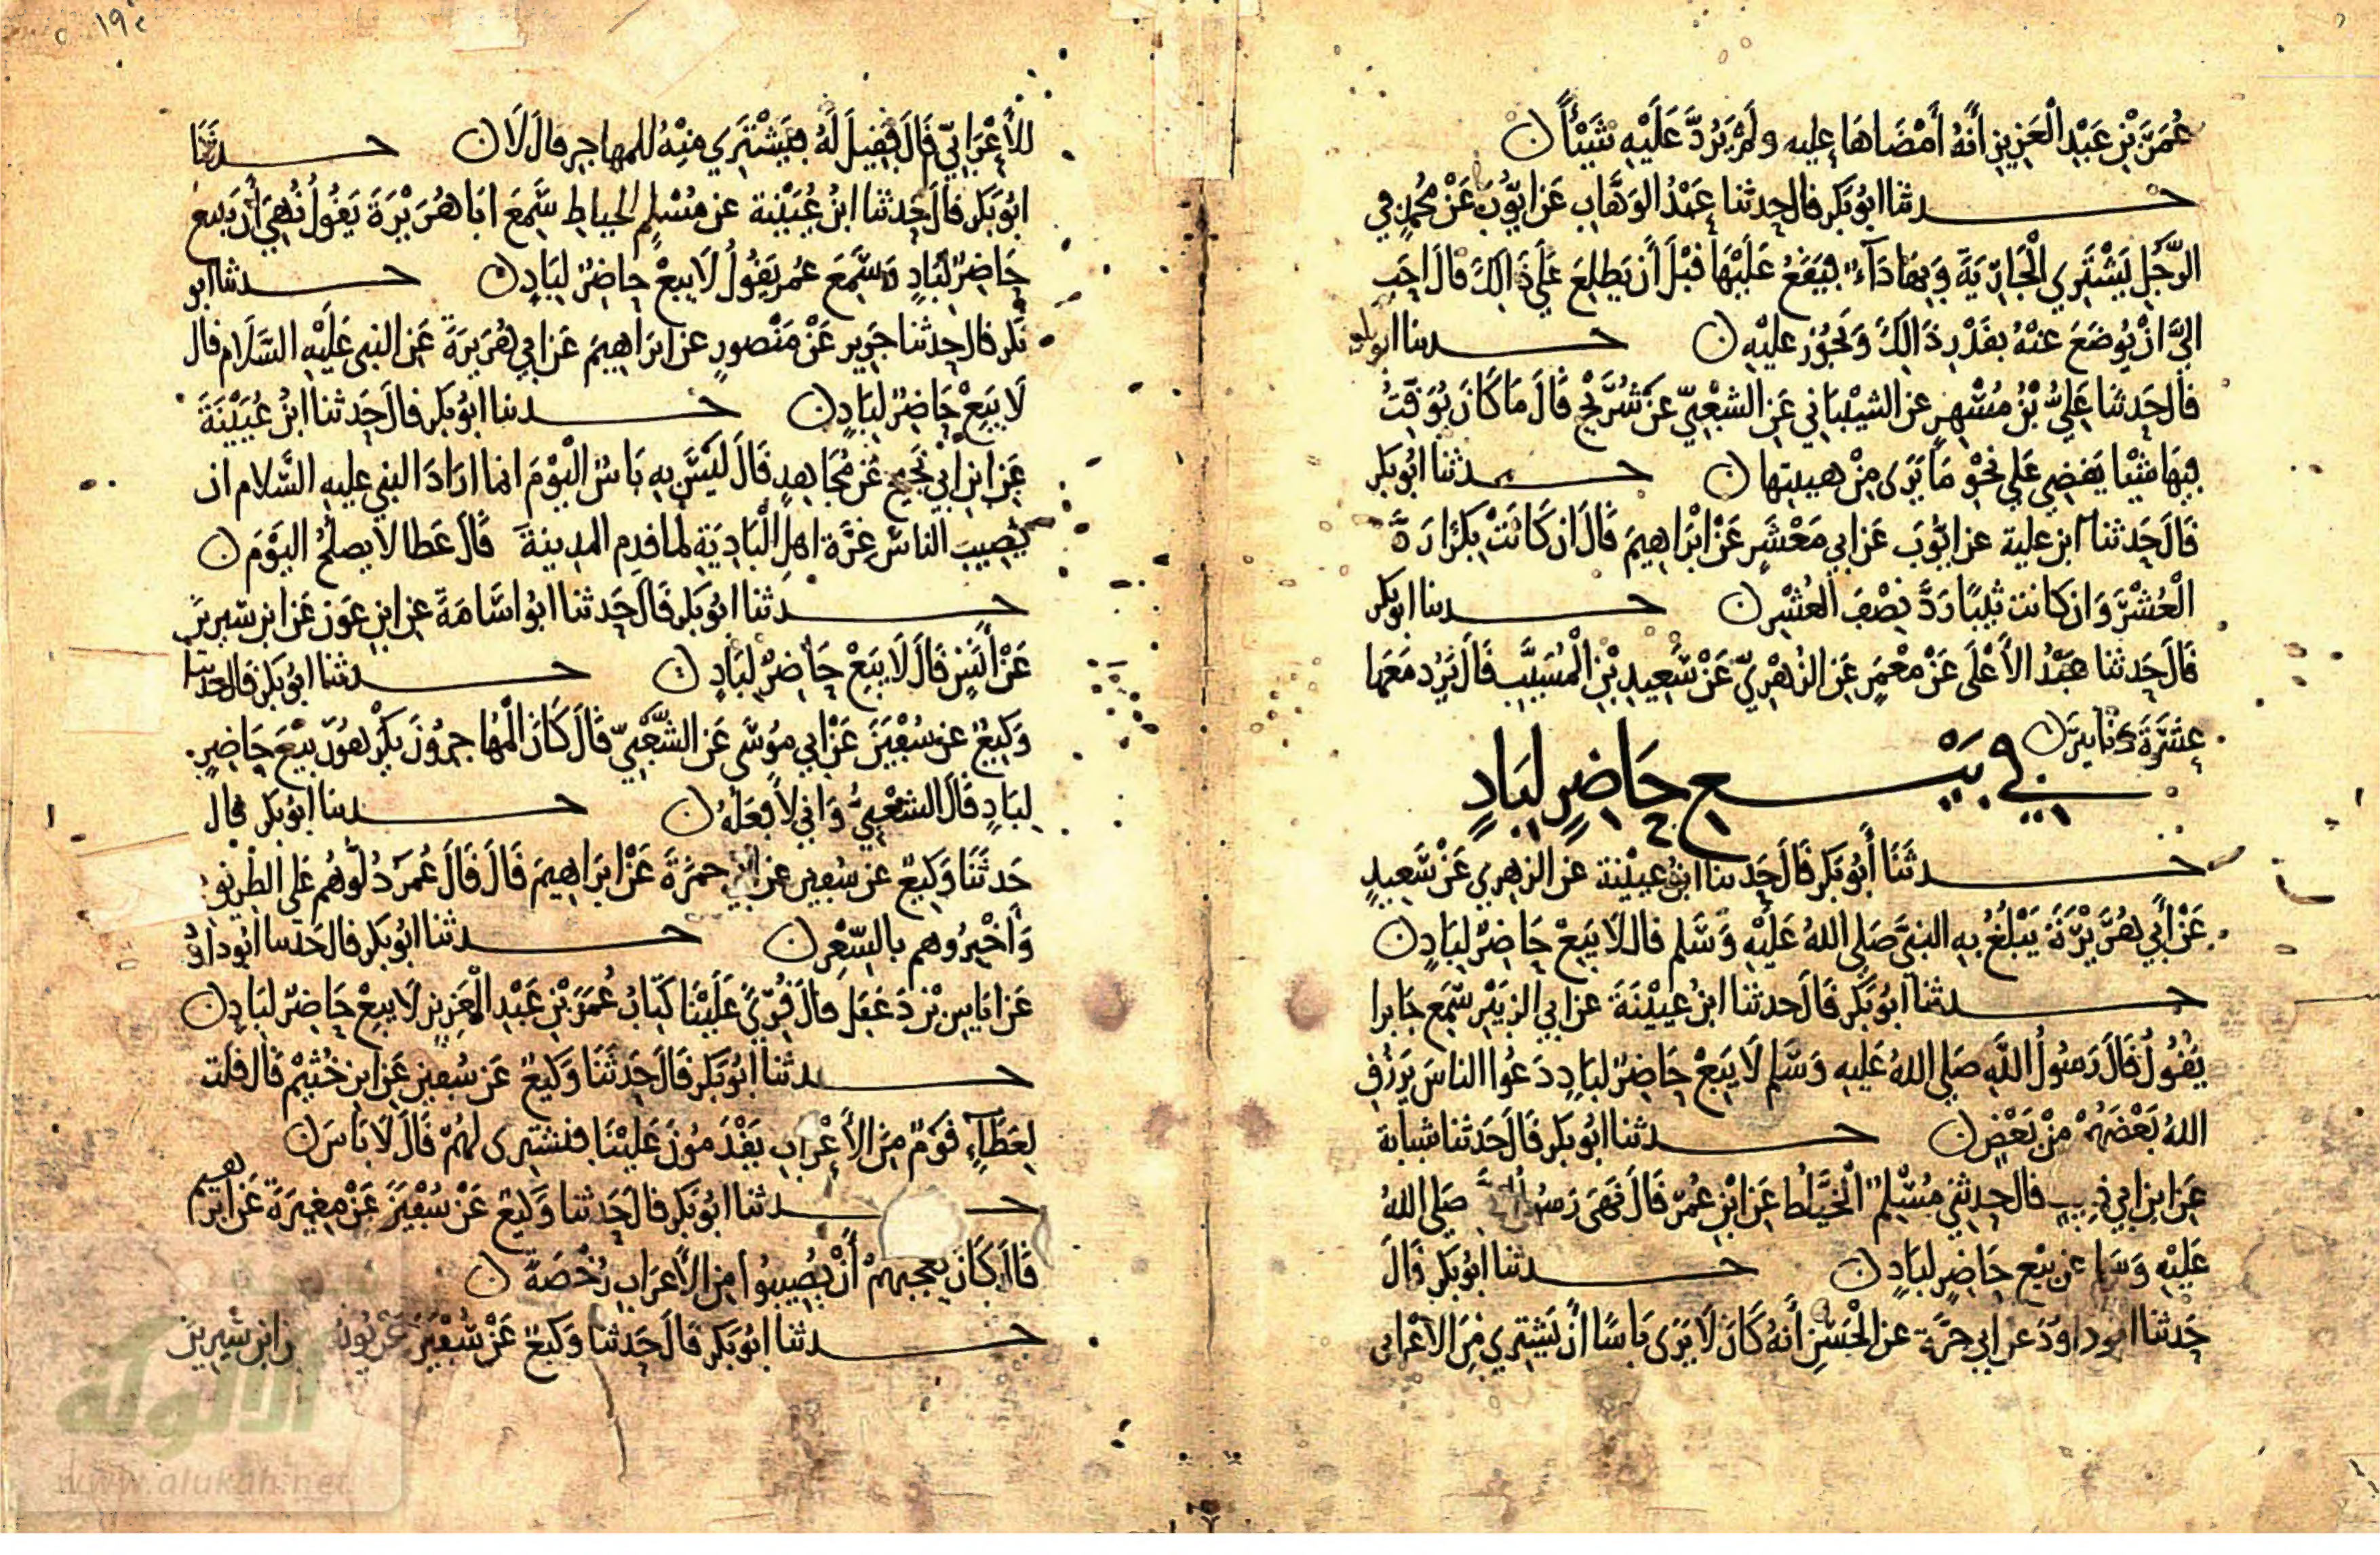 عُمَرَ بْنِ عَبْدِ الْعَزِيزِ أَنَّهُ أَمْضَاهَا عليه ولَمْ يَرُدَّ عَلَيْهِ شَيْئًا ن
حدثنا ابُو بَكر قال حدثنا عَبْدُ الوَهَّابِ عَن ايُّوبَ عَنْ مُحمدٍ في
الرَّجُلِ يَشْتَرِي الْجَارِيَةَ وَبِهَا دَآء فيَقَعُ عَلَيْهَا قَبْلَ أَن يَطلِعَ عَلَى ذَالِكَ قالَ احَب
اليَّ انْ يُوضَعَ عَنْهُ بقَدْرِ ذَالِكَ وَتَجُوز عليْهِ ن حدثنا ابو بكر
قال حَدثنا عَلِيُّ بْنُ مُسْهِرٍ عن الشيْبَاني عَنِ الشعْبِيِّ عَنْ شُرَيْحٍ قَالَ مَا كَانَ يُوَقِّتُ
فِيهَا شَيْا يَقضِي عَلى نحْوِ مَا يَرَى مِنْ هيئتها ن حدثنا ابُو بَكر
قَالَ حَدثنا ابن علية عن ايُّوبَ عَن ابي مَعْشَرٍ عَنْ ابْرَاهِيمَ قَالَ ان كَانَتْ بِكرًا رَدَّ
الْعُشْرَ وَان كانت ثيبًا رَدَّ نِصْفَ العُشْرِ ن حدثنا ابو بكر
قَالَ حَدثنا عَبْدُ الأَعْلَى عَنْ مَعْمَرٍ عَنِ الزُهْرِيِّ عَنْ سَعِيدِ بْنِ الْمُسَيَّبِ قَالَ يَرُد مَعَهَا
عَشَرَةَ دَنَانِيرَ ن
في بَيْع حَاضِرٍ لِبَادٍ
حدثَنَا أَبُو بَكر قَالَ حَدثنا ابنُ عيَيْنة عَن الزهري عَنْ سَعِيدٍ
عَنْ أَبي هُرَيْرَةَ يَبْلُغُ بِهِ النبيَّ صَلى اللهُ عَلَيْهِ وَسَلم قال لَا يَبِعْ حَاضِرٌ لِبَادٍ ن
حدثنا ابُو بَكر قَالَ حدثنا ابنُ عُيَيْنَةَ عن ابي الزبَيْرِ سَمِعَ جَابرا
يَقُولُ قَالَ رَسُولُ اللَّهِ صَلى اللهُ عَليهِ وَسَلم لَا يَبِعْ حَاضِرٌ لبَادٍ دَعُوا الناسَ يَرْزُقِ
اللهُ بَعْضَهُمْ مِنْ بَعْضٍ ن حدثنا ابُو بَكر قَالَ حَدثنا شبابة
عَن ابن ابي ذيب قال حدثني مُسْلِمٌ الْخَيَّاطُ عَن ابْنِ عُمَرَ قَالَ نَهَى رَسُولُ اللَّهِ صَلى اللهُ
عَلَيْهِ وَسَلم عَن بَيْعِ حَاضِرٍ لبَادٍ ن حدثنا ابُو بَكر قَالَ
حَدثنا ابو دَاوُدَ عن ابي حرَّة عن الْحَسَنِ أَنهُ كَانَ لَا يَرَى بَاسًا أَنْ يَشتِري مِنَ الأَعْرَابي
للأَعْرَابِيِّ قَالَ فقِيلَ لَهُ فيَشْتَرِي مِنْهُ للمهاجرِ قالَ لَا ن حدثَنَا
ابُو بَكر قَالَ حَدثنا ابنُ عُيَيْنة عن مُسْلِمٍ الخياط سَمِعَ ابَا هُرَيْرَةَ يَقُولُ نُهِيَ أَن يَبيعَ
حَاضِرٌ لِبَادٍ وَسَمِعَ عُمر يَقُولُ لَا يَبِعْ حاضِرٌ لِبَادٍ ن حدثنا ابو
بَكر قال حدثنا جَرِير عَنْ مَنْصورٍ عن ابرَاهِيمَ عَن ابي هُرَيرَةَ عَنِ النبى عَلَيْهِ السَّلَام قال
لَا يَبِعْ حَاضِرٌ لِبَادٍ ن حدثنا ابُو بَكر قالَ حَدثنا ابنُ عُيَيْنَةَ
عَنِ ابنِ أَبي نَجِيحٍ عَنْ مُجَاهِدٍ قَالَ لَيْسَ بِهِ بَاسٌ الْيَوْمَ انما ارَادَ النبي عليه السَّلام ان
يُصِيبَ الناسُ غرَّة اهلِ الْبَادِيَةِ لما قدِم المدِينةَ قَالَ عَطا لا يصلُحُ اليَوْمَ ن
حدثنا ابُو بَكر قَالَ حَدثنا ابُو اسَامَةَ عن ابنِ عَوْن عَن ابنِ سِيرِينَ
عَنْ أَنَسٍ قَالَ لَا يَبَعْ حَاضِرٌ لِبَادٍ ن حدثنا ابُو بَكر قال حدثنا
وَكِيعٌ عن سُفْيَنَ عَنْ ابي مُوسَى عَن الشَّعْبِيِّ قَالَ كَانَ الْمُهَاجِرُونَ يَكْرَهُونَ بَيْعَ حَاضِرٍ
لِبَادٍ قَالَ الشعْبِيُّ وَاني لأَفعَلُهُ ن حدثنا ابُو بَكر قال
حَدثَنَا وَكِيعٌ عن سُفين عن ابي حمزَةَ عَنْ ابرَاهِيمَ قَالَ قَالَ عُمَرُ دُلُّوهُم عَلى الطَّرِيقِ
وَاَخْبِرُوهم بالسِّعْرِ ن حدثنا ابُو بَكر قال حَدثنا ابُو داوُد
عَن ايَاسِ بْنِ دَغفَلٍ قالَ قُرِئَ عَلَيْنَا كِتَابُ عُمَرَ بْنِ عَبْدِ الْعَزِيزِ لَا يبِعْ حَاضِرٌ لبَادٍ ن
حدثنا ابُو بَكر قَالَ حَدثَنَا وَكِيعٌ عَن سُفين عَن ابنِ خُثَيْم قَالَ قلت
لِعَطَآءٍ قَوْمٌ مِنَ الأَعْرَابِ يَقْدَمُونَ عَلَيْنَا فنشترى لَهُمْ قَالَ لَا بَاسَ ن
حدثنا ابُو بَكر قَالَ حَدثنا وَكِيعٌ عَنْ سُفْيَنَ عَنْ مغِيرَةَ عَن ابرهيم
قَالَ كَانَ يعجبهمْ أَنْ يُصِيبُوا مِنَ الأَعرَابِ رُخْصَةً ن
حدثنا ابُو بَكر قَالَ حَدثنا وَكِيعٌ عَنْ سُفْيَنَ عَنْ يُونُسَ عن ابن سِيرِينَ
الألوكة
www.alukah.net